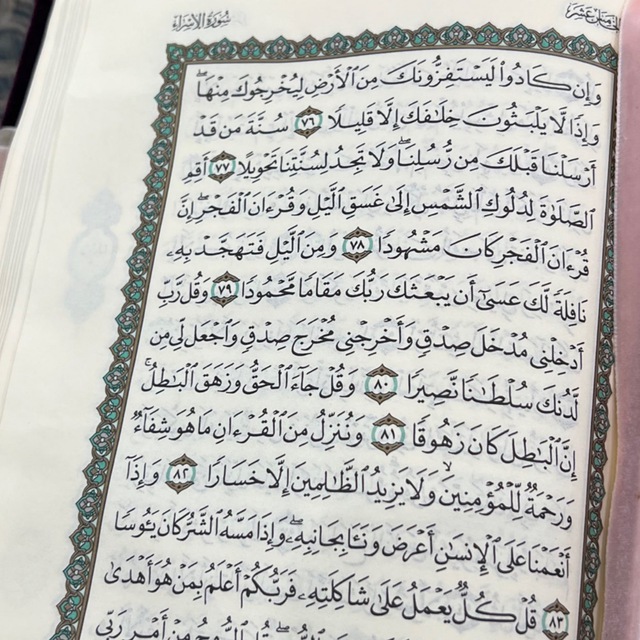 سُورَةُ الإِسْرَاءِ
وَإِن كَادُوا۟ لَيَسْتَفِزُّونَكَ مِنَ ٱلْأَرْضِ لِيُخْرِجُوكَ مِنْهَا ۖ
وَإِذًا لَّا يَلْبَثُونَ خِلَـٰفَكَ إِلَّا قَلِيلًا ٧٦ سُنَّةَ مَن قَدْ
أَرْسَلْنَا قَبْلَكَ مِن رُّسُلِنَا ۖ وَلَا تَجِدُ لِسُنَّتِنَا تَحْوِيلًا ٧٧ أَقِمِ
ٱلصَّلَوٰةَ لِدُلُوكِ ٱلشَّمْسِ إِلَىٰ غَسَقِ ٱلَّيْلِ وَقُرْءَانَ ٱلْفَجْرِ ۖ إِنَّ
قُرْءَانَ ٱلْفَجْرِ كَانَ مَشْهُودًا ٧٨ وَمِنَ ٱلَّيْلِ فَتَهَجَّدْ بِهِۦ
نَافِلَةً لَّكَ عَسَىٰٓ أَن يَبْعَثَكَ رَبُّكَ مَقَامًا مَّحْمُودًا ٧٩ وَقُل رَّبِّ
أَدْخِلْنِى مُدْخَلَ صِدْقٍ وَأَخْرِجْنِى مُخْرَجَ صِدْقٍ وَٱجْعَل لِّى مِن
لَّدُنكَ سُلْطَـٰنًا نَّصِيرًا ٨٠ وَقُلْ جَآءَ ٱلْحَقُّ وَزَهَقَ ٱلْبَـٰطِلُ ۚ
إِنَّ ٱلْبَـٰطِلَ كَانَ زَهُوقًا ٨١ وَنُنَزِّلُ مِنَ ٱلْقُرْءَانِ مَا هُوَ شِفَآءٌ
وَرَحْمَةٌ لِّلْمُؤْمِنِينَ ۙ وَلَا يَزِيدُ ٱلظَّـٰلِمِينَ إِلَّا خَسَارًا ٨٢ وَإِذَآ
أَنْعَمْنَا عَلَى ٱلْإِنسَـٰنِ أَعْرَضَ وَنَـَٔا بِجَانِبِهِۦ ۖ وَإِذَا مَسَّهُ ٱلشَّرُّ كَانَ يَـُٔوسًا
٨٣ قُلْ كُلٌّ يَعْمَلُ عَلَىٰ شَاكِلَتِهِۦ فَرَبُّكُمْ أَعْلَمُ بِمَنْ هُوَ أَهْدَىٰ
ٱلرُّوحُ مِنْ أَمْرِ رَبِّى